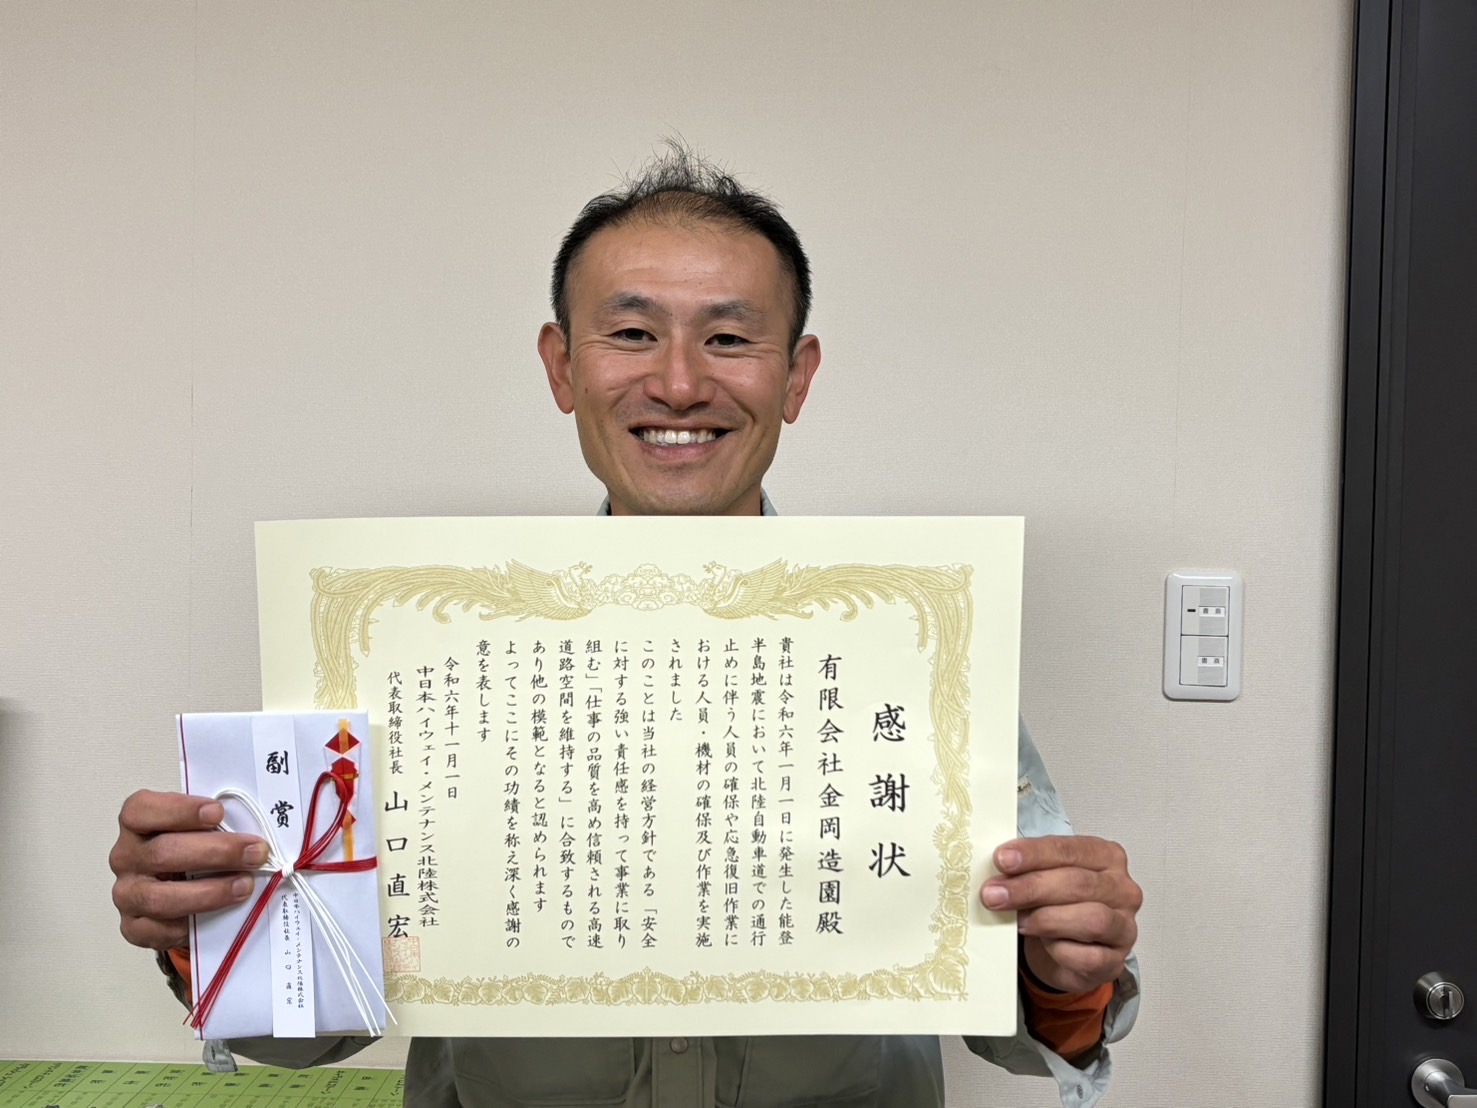 感謝状
有限会社金岡造園殿
貴社は令和六年一月一日に発生した能登
半島地震において北陸自動車道での通行
止めに伴う人員の確保や応急復旧作業に
おける人員・機材の確保及び作業を実施
されました
このことは当社の経営方針である「安全
に対する強い責任感を持って事業に取り
組む」「仕事の品質を高め信頼される高速
道路空間を維持する」に合致するもので
あり他の模範となると認められます
よってここにその功績を称え深く感謝の
意を表します
令和六年十一月一日
中日本ハイウェイ・メンテナンス北陸株式会社
代表取締役社長 山口直宏
副賞
中日本ハイウェイ・メンテナンス北陸株式会社
代表取締役社長 山口直宏